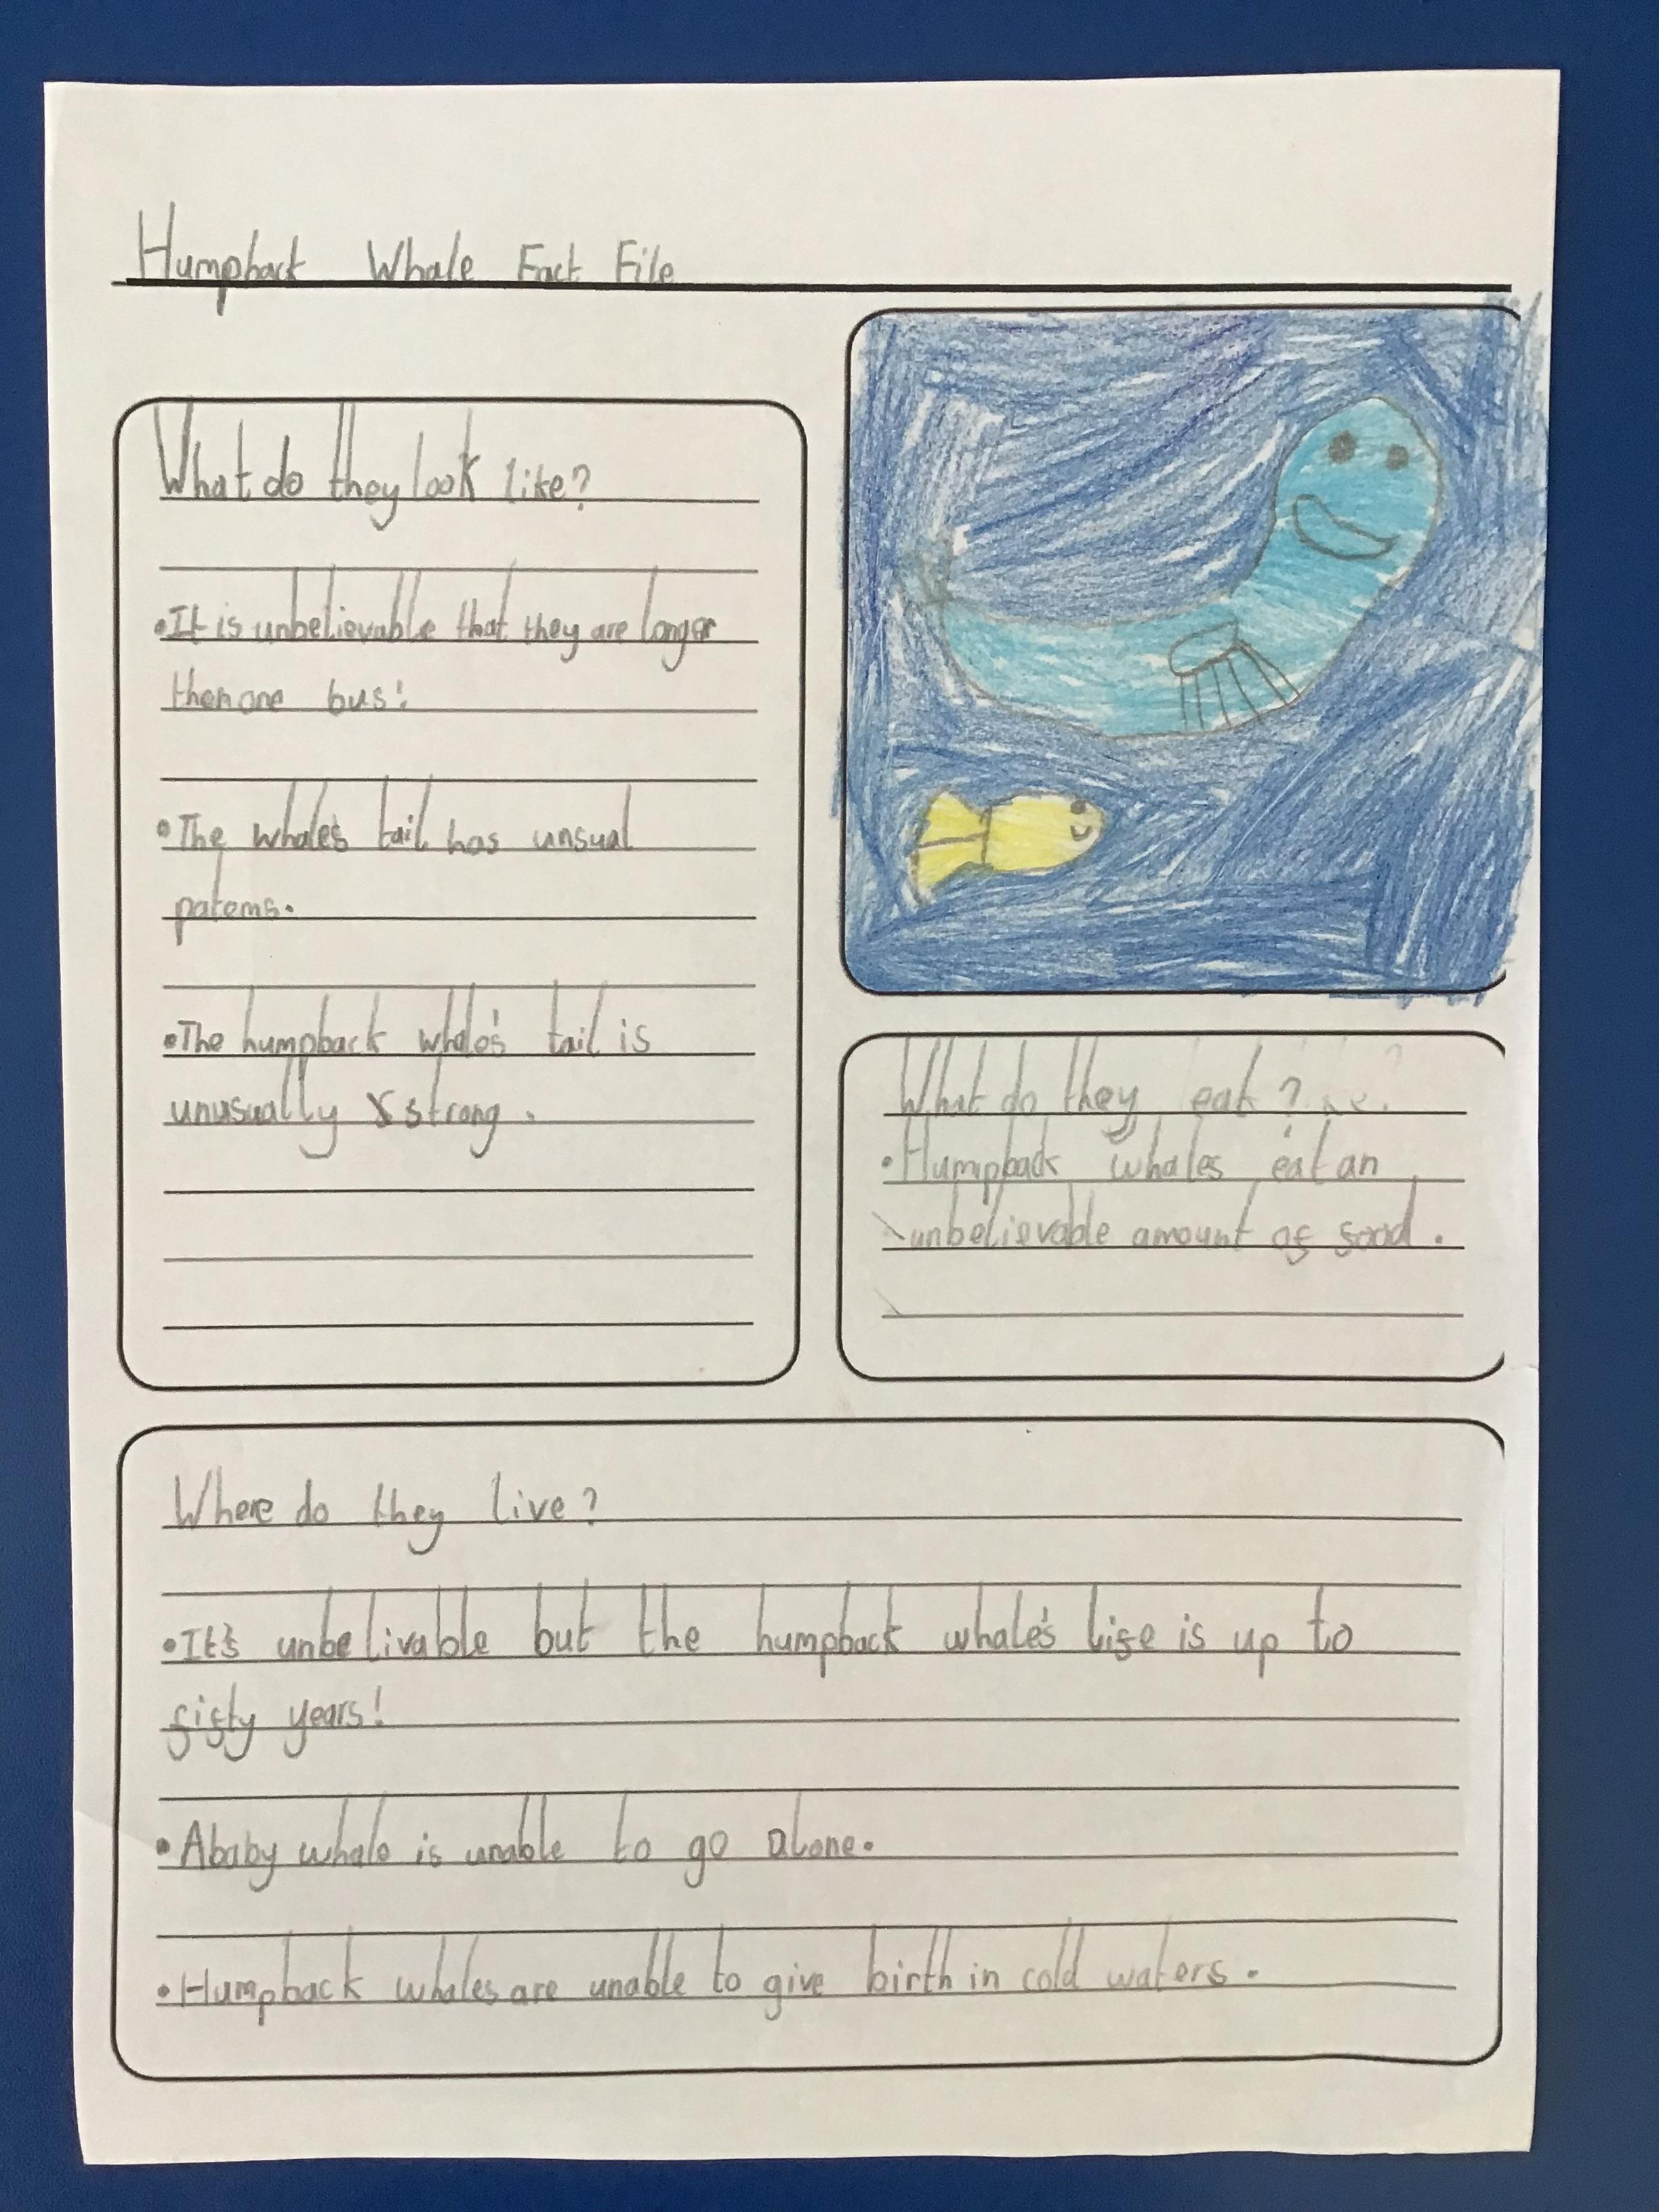 Humpback Whale Fact File
What do they look like?
•It is unbelievable that they are longer
then one bus!
•The whale's tail has unsual
paterns.
•The humpback whale's tail is
unusually strong.
What do they eat?
•Humpback whales eat an
unbelievable amount of food.
Where do they live?
•It's unbelivable but the humpback whale's life is up to
fifty years!
•A baby whale is unable to go alone.
•Humpback whales are unable to give birth in cold waters.